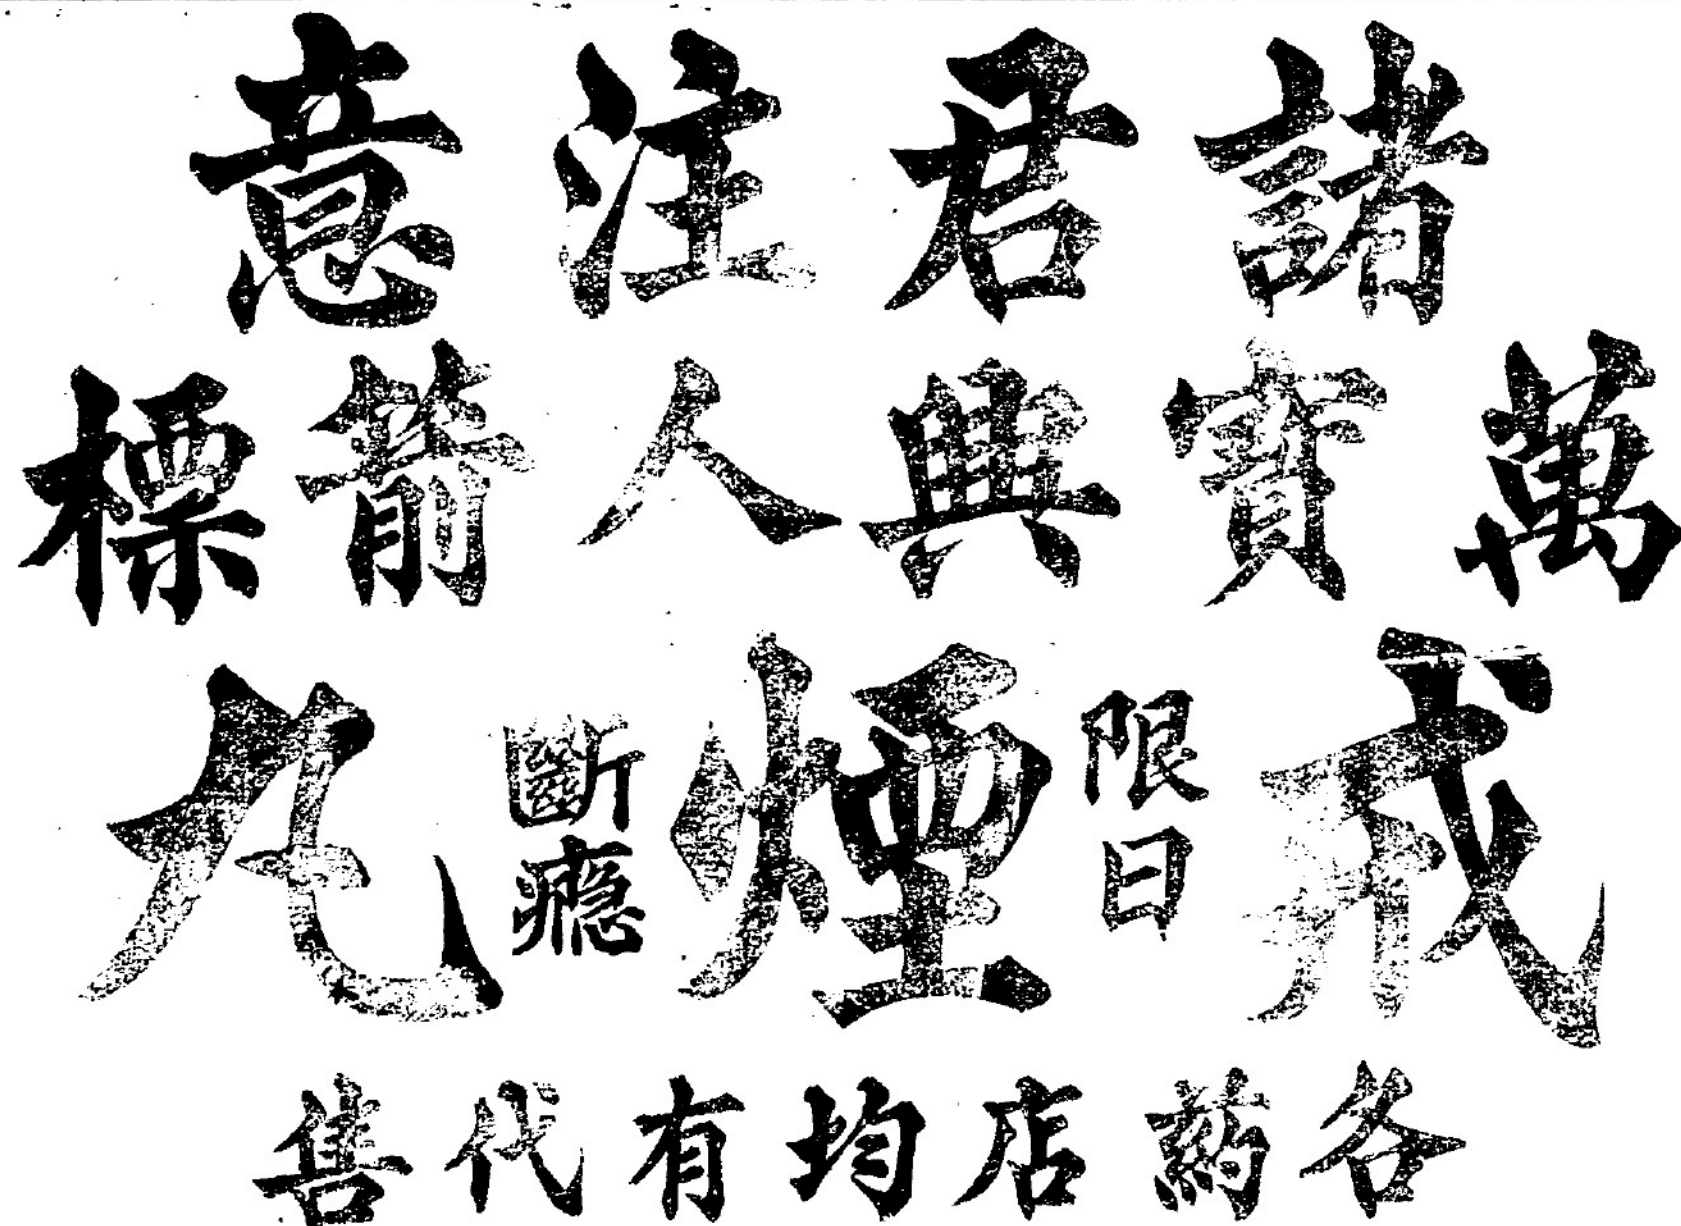 諸君注意
萬寶興人箭標
戒限日煙斷癮丸
各葯店均有代售